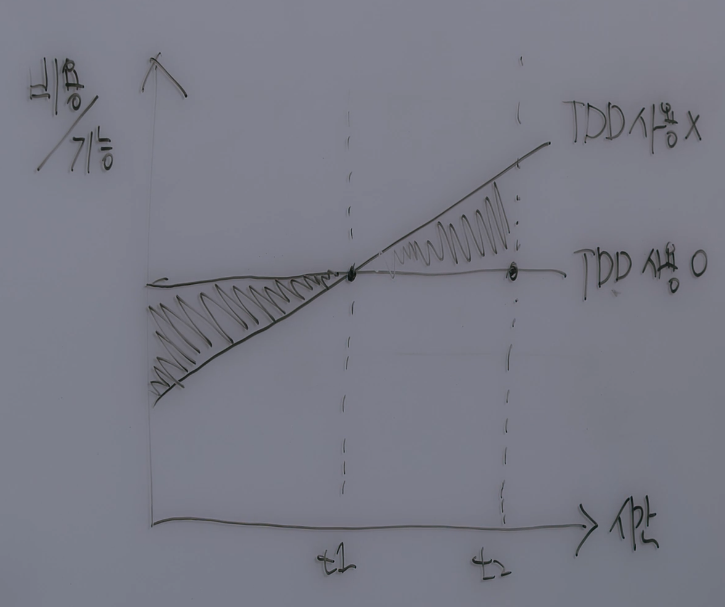 비용
/기능
TDD 사용 X
TDD 사용 O
시간
t1
t2